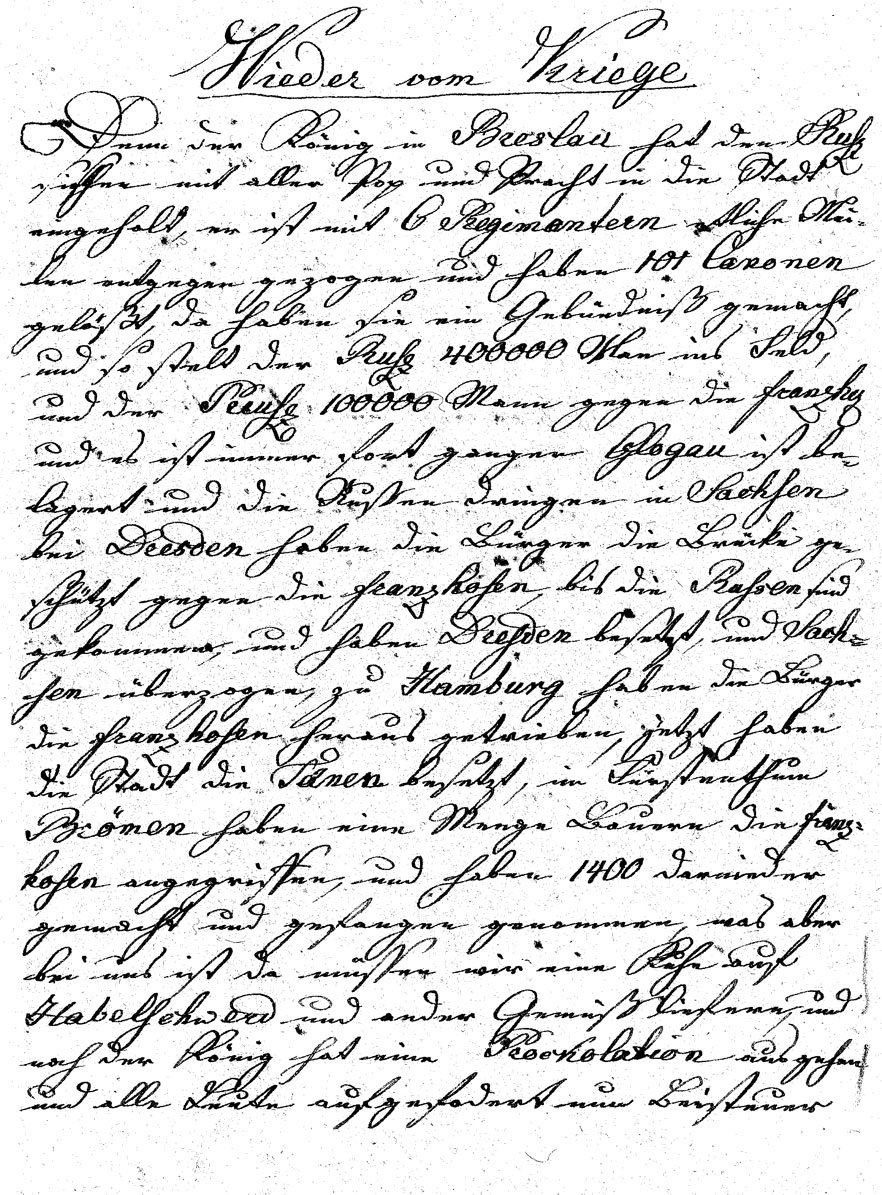 Wieder vom Kriege
Denn der König in Breslau hat den Ruß
sischen mit aller Pop und Pracht in die Stadt
eingeholt, er ist mit 6 Regimantern etliche Mei-
len entgegen gezogen und haben 101 Canonen
gelößt, da haben sie ein Gebündniß gemacht,
und so stelt der Ruß 400000 Man ins Feld,
und der Preuß 100000 Mann gegen die franzho
und es ist immer fort gangen Glogau ist be-
lagert und die Russen dringen in Sachsen
bei Dresden haben die Bürger die Brücke ge-
schützt gegen die franzhosen, bis die Rußen sind
gekommen, und haben Dresden besetzt, und Sach=
sen überzogen, zu Hamburg haben die Bürger
die franzhosen heraus getrieben, jetzt haben
die Stadt die Tänen besetzt, im Fürstenthum
Brömen haben eine Menge Bauern die franz=
hosen angegriffen, und haben 1400 darnieder
gemacht und gefangen genommen, was aber
bei uns ist da müssen wir eine Kuhe auf
Habelschwerd und ander Gemüß liefern, und
noch der König hat eine Prockolation ausgehen
und alle Leute aufgefodert nun Beisteuer